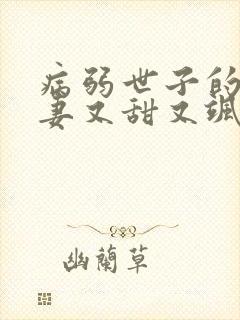 病弱世子的
妻又甜又飒
幽兰草